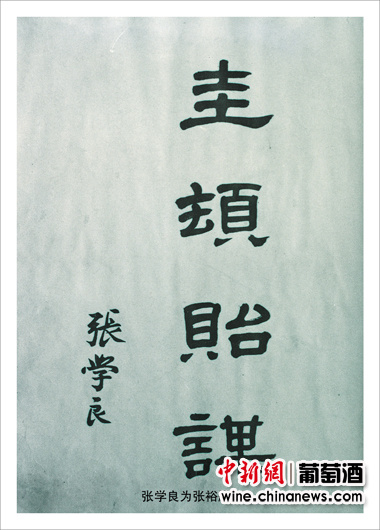 圭頓貽謀
張学良
张学良为张裕
中新網 葡萄酒
wine.chinanews.com